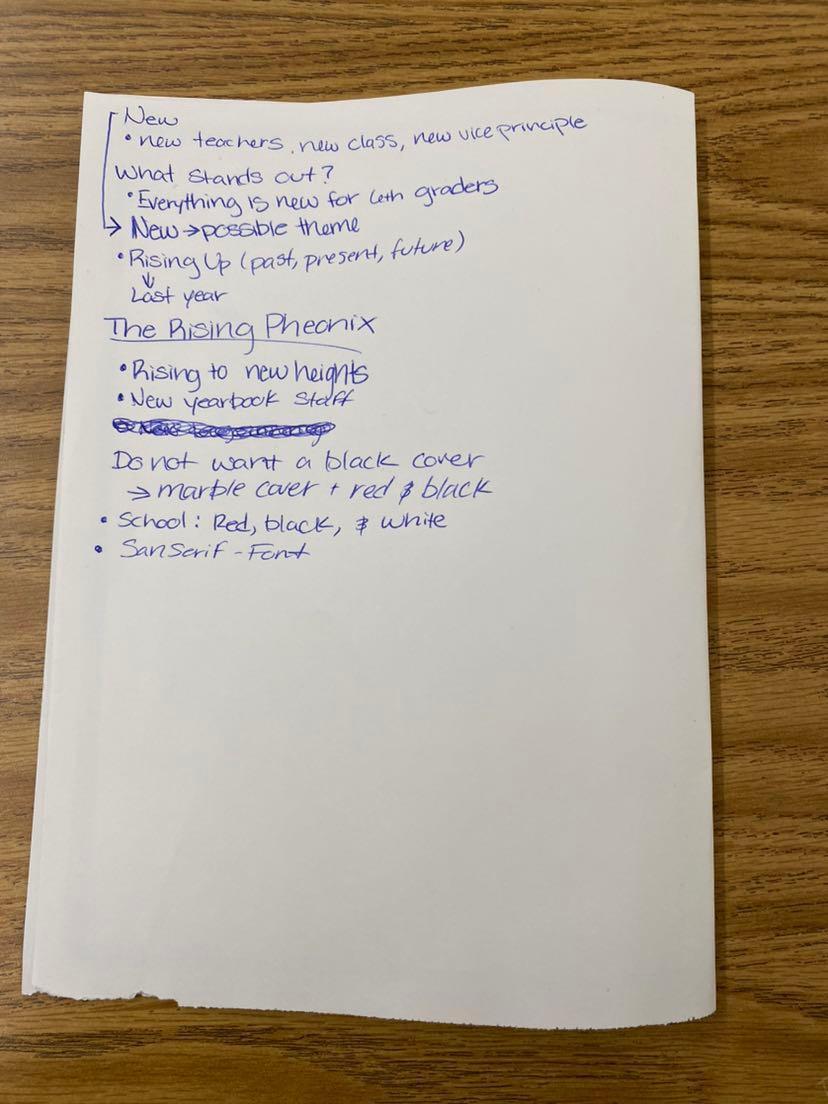 New
• new teachers, new class, new vice principle
What stands out?
• Everything is new for 6th graders
→ New → possible theme
• Rising Up (past, present, future)
↓
Last year
The Rising Pheonix
• Rising to new heights
• New yearbook staff
Do not want a black cover
→ marble cover + red & black
• School: Red, black, & white
• San Serif - Font